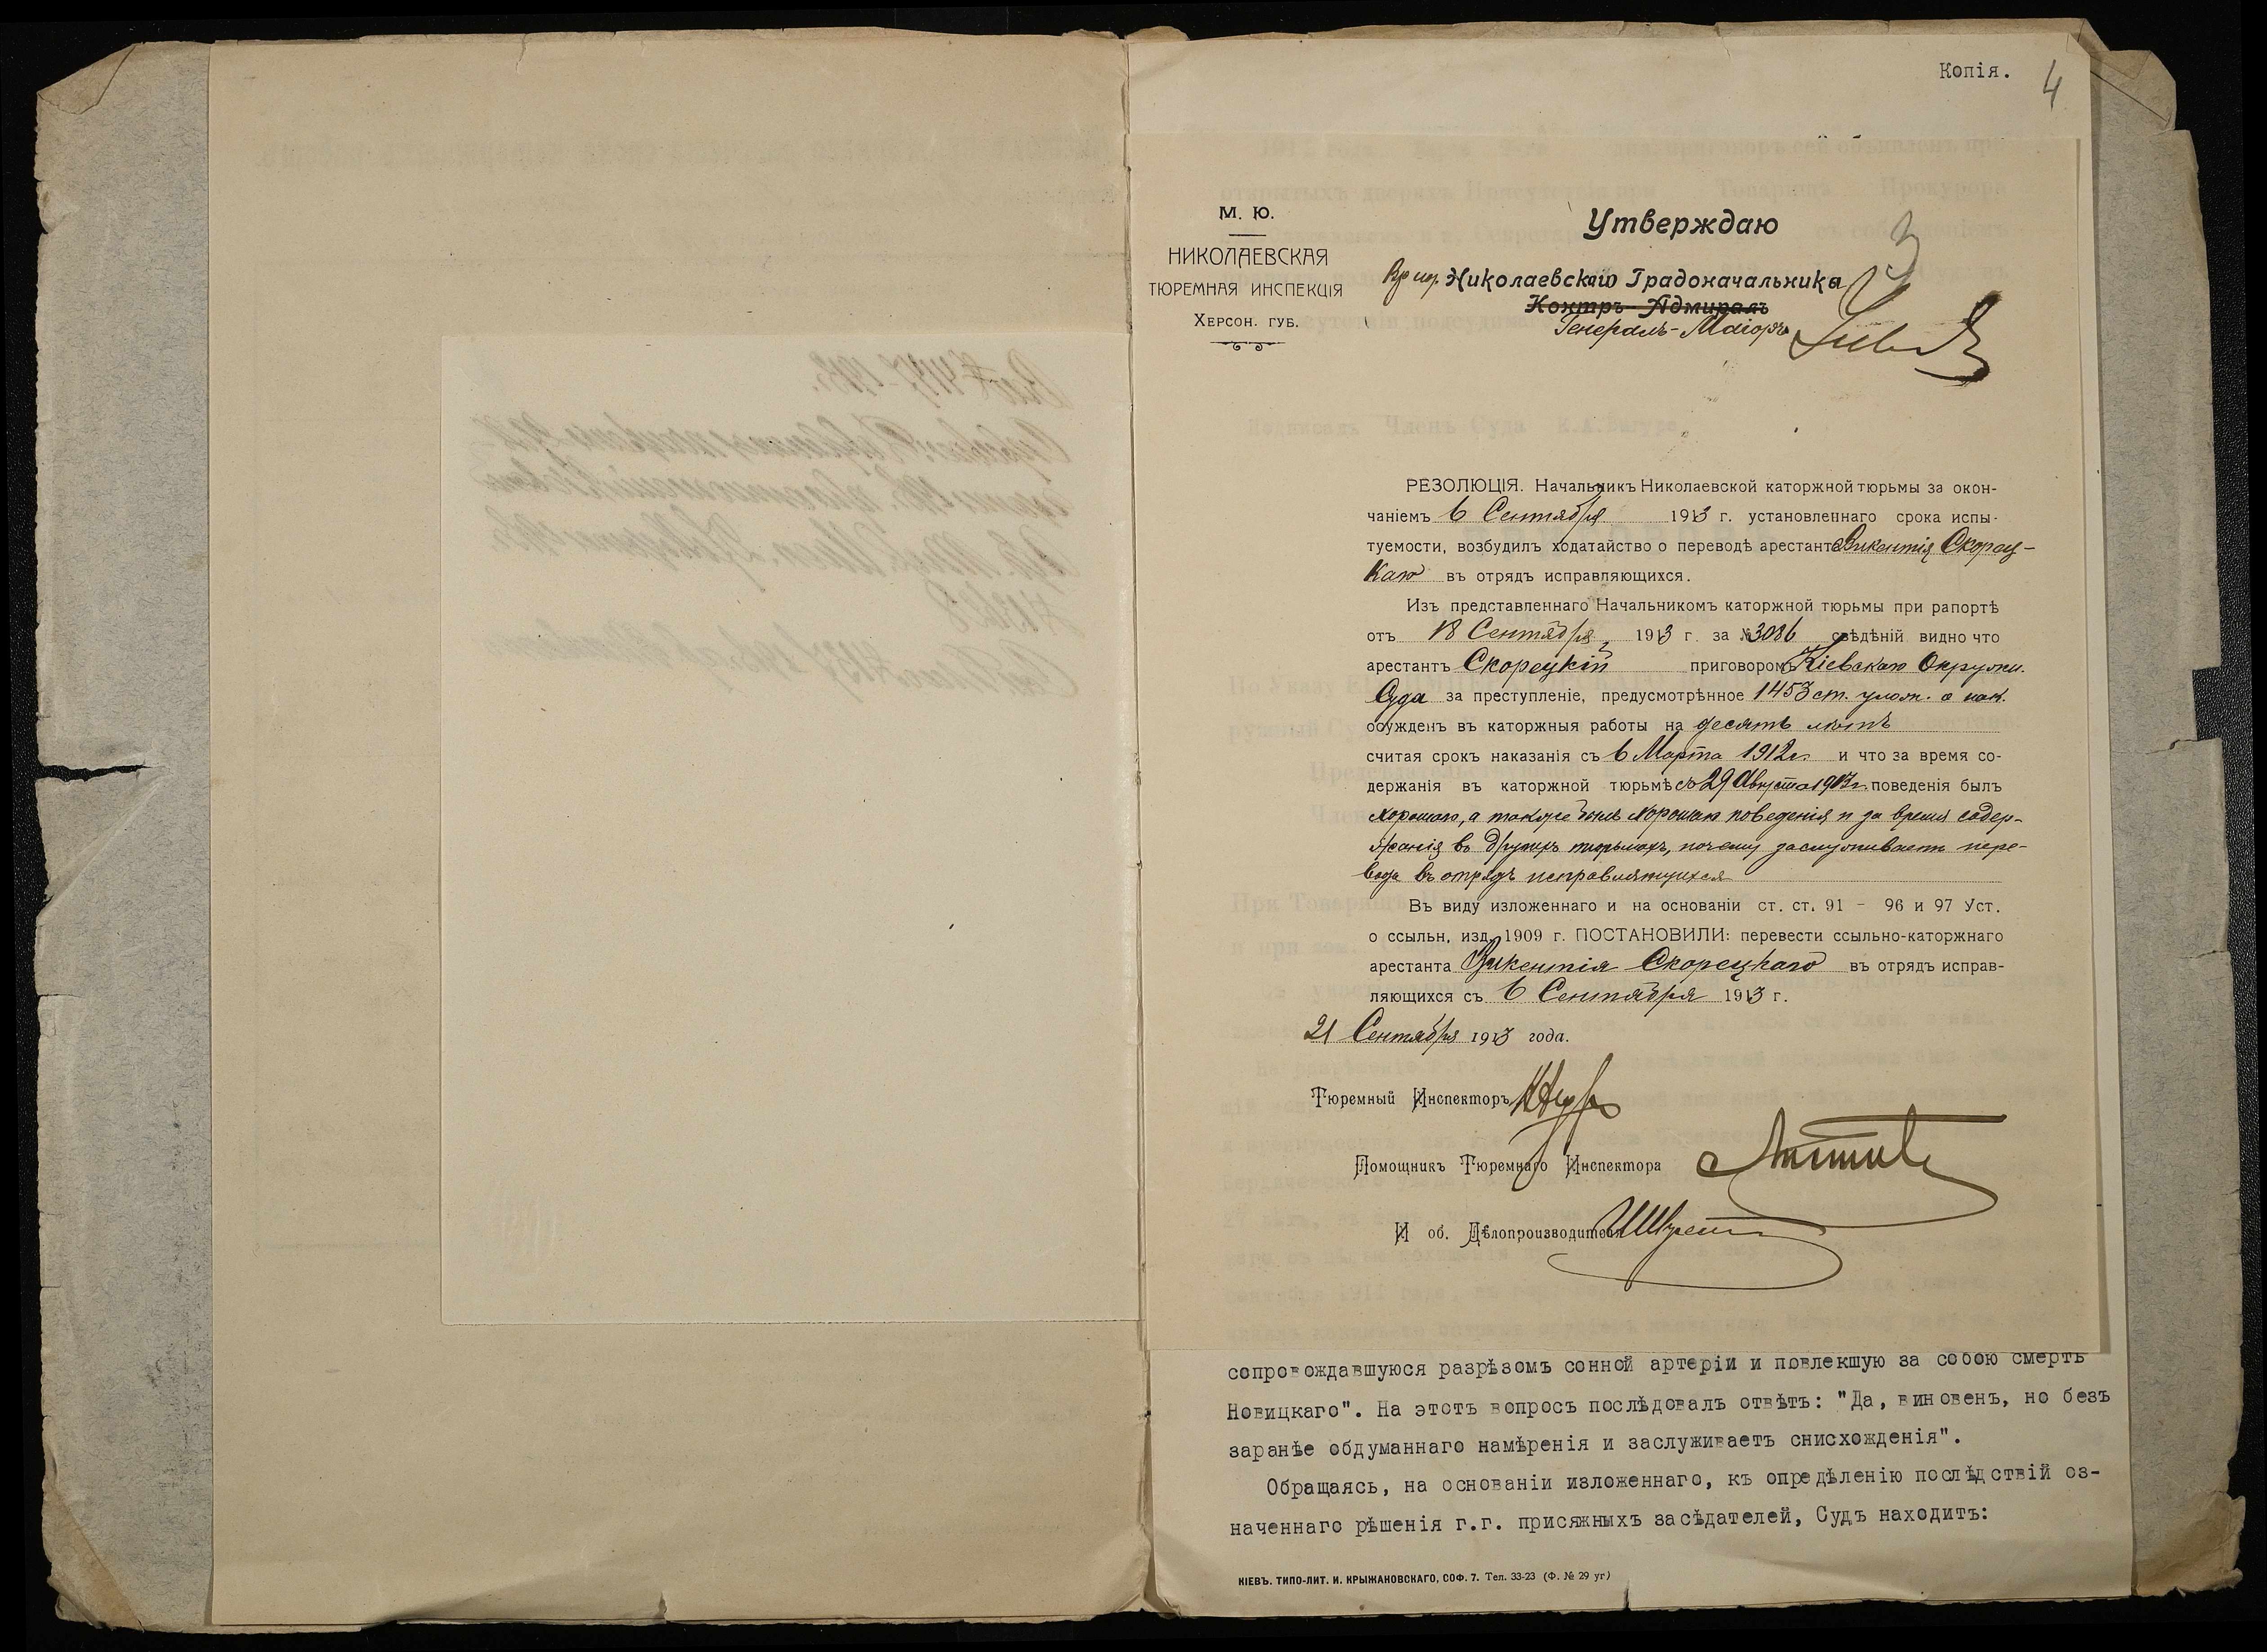 Копія.
4
3
М. Ю.
НИКОЛАЕВСКАЯ
ТЮРЕМНАЯ ИНСПЕКЦІЯ
ХЕРСОН. ГУБ.
Утверждаю
Николаевскаго Градоначальника
Контръ-Адмиралъ
Генералъ-Маіоръ
РЕЗОЛЮЦІЯ. Начальникъ Николаевской каторжной тюрьмы за окон-
чаніемъ 6 Сентября 1913 г. установленнаго срока испы-
туемости, возбудилъ ходатайство о переводѣ арестанта Викентія Скорец-
каго въ отрядъ исправляющихся.
Изъ представленнаго Начальникомъ каторжной тюрьмы при рапортѣ
отъ 18 Сентября 1913 г. за № 3086 свѣдѣній видно что
арестантъ Скорецкій приговоромъ Кіевскаго Окружн.
Суда за преступленіе, предусмотрѣнное 1453 ст. улож. о нак.
осужденъ въ каторжныя работы на десять лѣтъ
считая срокъ наказанія съ 6 Марта 1912 г. и что за время со-
держанія въ каторжной тюрьмѣ съ 29 Августа 1913 г. поведенія былъ
хорошаго, а также былъ хорошаго поведенія и за время содер-
жанія въ другихъ тюрьмахъ, почему заслуживаетъ пере-
вода въ отрядъ исправляющихся
Въ виду изложеннаго и на основаніи ст. ст. 91 – 96 и 97 Уст.
о ссыльн. изд. 1909 г. ПОСТАНОВИЛИ: перевести ссыльно-каторжнаго
арестанта Викентія Скорецкаго въ отрядъ исправ-
ляющихся съ 6 Сентября 1913 г.
21 Сентября 1913 года.
Тюремный Инспекторъ
Помощникъ Тюремнаго Инспектора
И об. Дѣлопроизводителя
сопровождавшуюся разрѣзомъ сонной артеріи и повлекшую за собою смерть
Новицкаго". На этотъ вопросъ послѣдовалъ отвѣтъ: "Да, виновенъ, но безъ
заранѣе обдуманнаго намѣренія и заслуживаетъ снисхожденія".
Обращаясь, на основаніи изложеннаго, къ опредѣленію послѣдствій оз-
наченнаго рѣшенія г.г. присяжныхъ засѣдателей, Судъ находитъ:
КІЕВЪ. ТИПО-ЛИТ. И. КРЫЖАНОВСКАГО, СОФ. 7. Тел. 33-23 (Ф. № 29 уг)